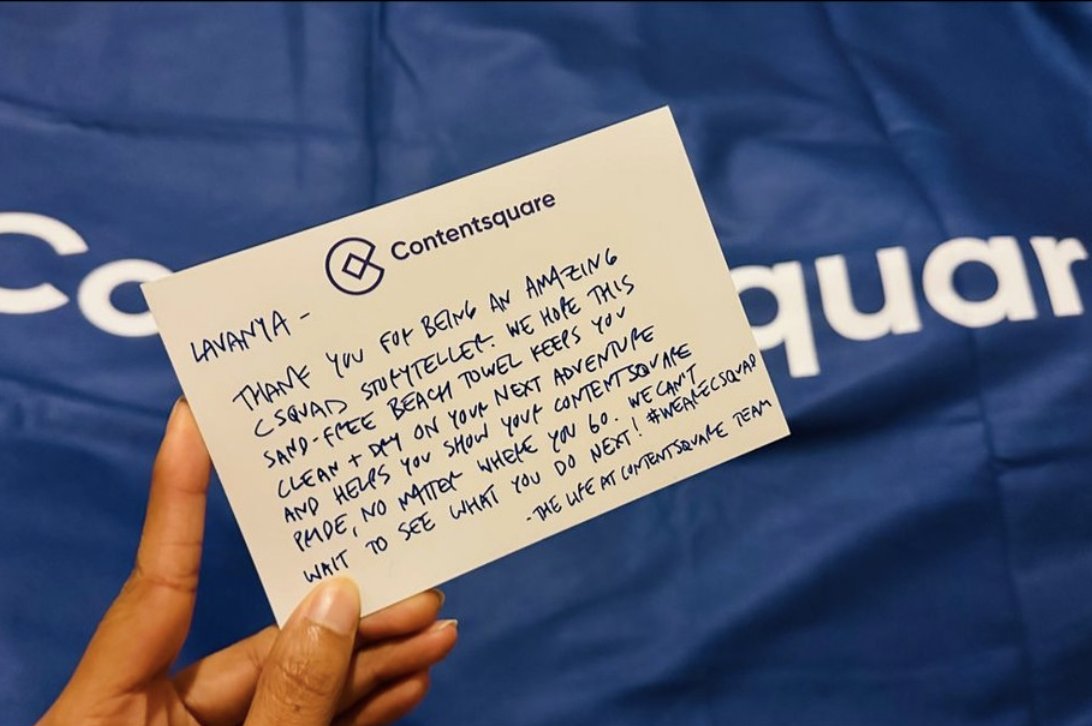 Contentsquare
LAVANYA -
THANK YOU FOR BEING AN AMAZING
CSQUAD STORYTELLER. WE HOPE THIS
SAND-FREE BEACH TOWEL KEEPS YOU
CLEAN + DRY ON YOUR NEXT ADVENTURE
AND HELPS YOU SHOW YOUR CONTENTSQUARE
PRIDE, NO MATTER WHERE YOU GO. WE CAN'T
WAIT TO SEE WHAT YOU DO NEXT! #WEARECSQUAD
- THE LIFE AT CONTENTSQUARE TEAM
Co square